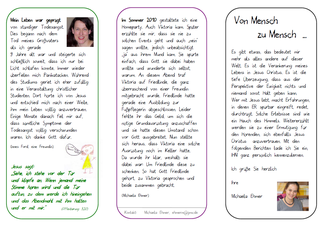 Mein Leben war geprägt
von ständiger Todesangst.
Dies begann nach dem
Tod meines Großvaters
als ich gerade
9 Jahre alt war und steigerte sich
schließlich soweit, dass ich nur bei
Licht schlafen konnte. Immer wieder
überfielen mich Panikattacken. Während
des Studiums geriet ich eher zufällig
in eine Veranstaltung christlicher
Studenten. Dort hörte ich von Jesus
und entschied mich nach einer Weile,
ihm mein Leben völlig anzuvertrauen.
Einige Monate danach fiel mir auf,
dass sämtliche Symptome der
Todesangst völlig verschwunden
waren. Ich danke Gott dafür.
Jesus sagt:
"Siehe, ich stehe vor der Tür
und klopfe an. Wenn jemand meine
Stimme hören wird und die Tür
auftun, zu dem werde ich hineingehen
und das Abendmahl mit ihm halten
und er mit mir."
Offenbarung 3,20
Im Sommer 2010 gestaltete ich eine
Homeparty. Auch Viktoria kam. Später
erzählte sie mir, dass sie nie zu
solchen Events geht und auch "nein"
sagen wollte, jedoch unbeabsichtigt
"ja" aus ihrem Mund kam. So spürte
einfach, dass Gott sie dabei haben
wollte und wunderte sich selbst,
warum. An diesem Abend traf
Viktoria auf Friedlinde, die ganz
überraschend von einer Freundin
mitgebracht wurde. Friedlinde hatte
gerade eine Ausbildung zur
Fußpflegerin abgeschlossen. Leider
fehlte ihr das Geld, um sich die
nötige Grundausrüstung anzuschaffen
und sie hatte diesen Umstand schon
vor Gott ausgebreitet. Nun stellte
sich heraus, dass Viktoria eine solche
Ausrüstung noch im Keller hatte.
Da wurde ihr klar, weshalb sie
dabei war: Um Friedlinde diese zu
schenken. So hat Gott Friedlinde
gehört, zu Viktoria gesprochen und
beide zusammen gebracht.
Michaela Ebner
Kontakt: Michaela Ebner
Von Mensch
zu Mensch ...
Es gibt etwas, das bedeutet mir
mehr als alles andere auf dieser
Welt. Es ist die Verankerung meines
Lebens in Jesus Christus. Es ist die
tiefe Überzeugung, dass aus der
Perspektive der Ewigkeit nichts und
niemand sonst Halt geben kann.
Wer mit Jesus lebt, macht Erfahrungen,
in denen ER spürbar eingreift, redet,
durchträgt. Solche Erlebnisse sind wie
ein Hauch des Himmels. Weitererzählt
werden sie zu einer Ermutigung für
den Nächsten, sich ebenfalls Jesus
Christus anzuvertrauen. Mit den
folgenden Berichten lade ich Sie ein,
IHN ganz persönlich kennenzulernen.
Ich grüße Sie herzlich
Ihre
Michaela Ebner